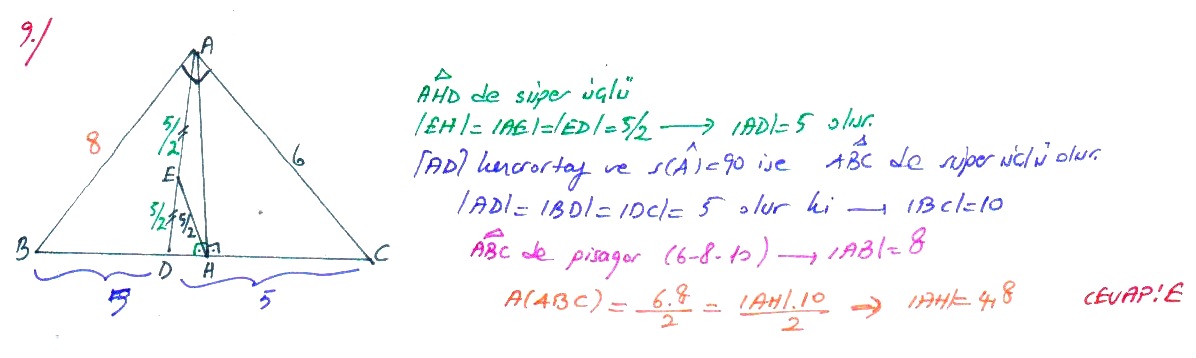 9./
A
8
5/2
6
E
5/2
5/2
B
D
H
C
5
5
AHD de süper üçlü
|EH|=|AE|=|ED|=5/2 → |AD|=5 olur.
[AD] kenarortay ve s(Â)=90 ise ABC de süper üçlü olur.
|AD|=|BD|=|DC|= 5 olur ki → |BC|=10
ABC de pisagor (6-8-10) → |AB|=8
A(ABC) = 6.8/2 = |AH|.10/2 ⇒ |AH|=4,8
CEVAP: E